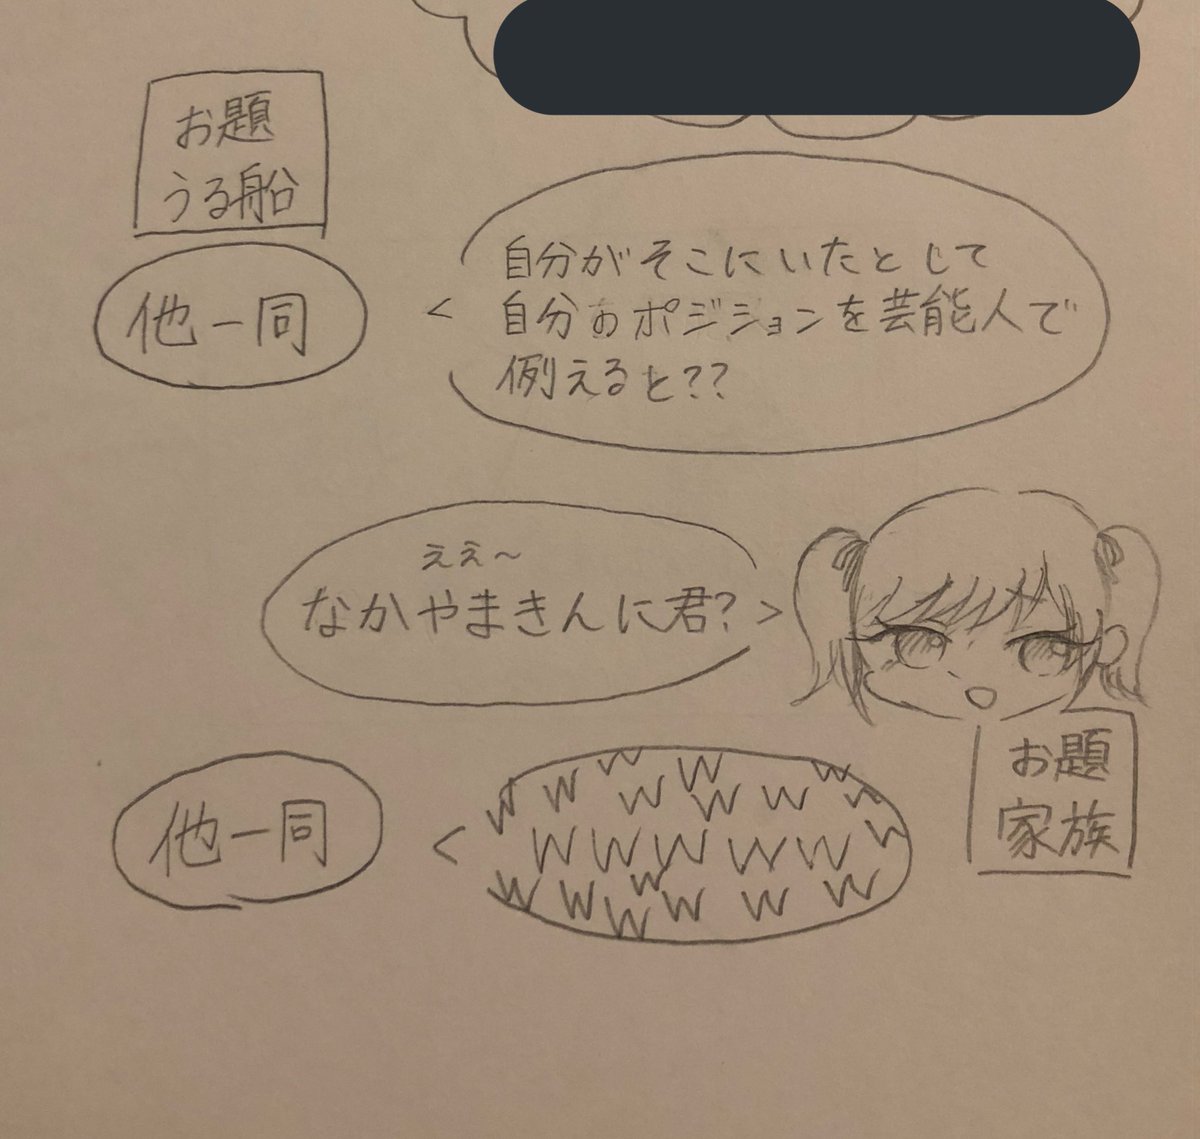 お題
うる船
他一同
<
自分がそこにいたとして
自分のポジションを芸能人で
例えると??
ええ～
なかやまきんに君?
>
お題
家族
他一同
<
W W W W
W W W W W W
W W W W W W
W W W W W W W W